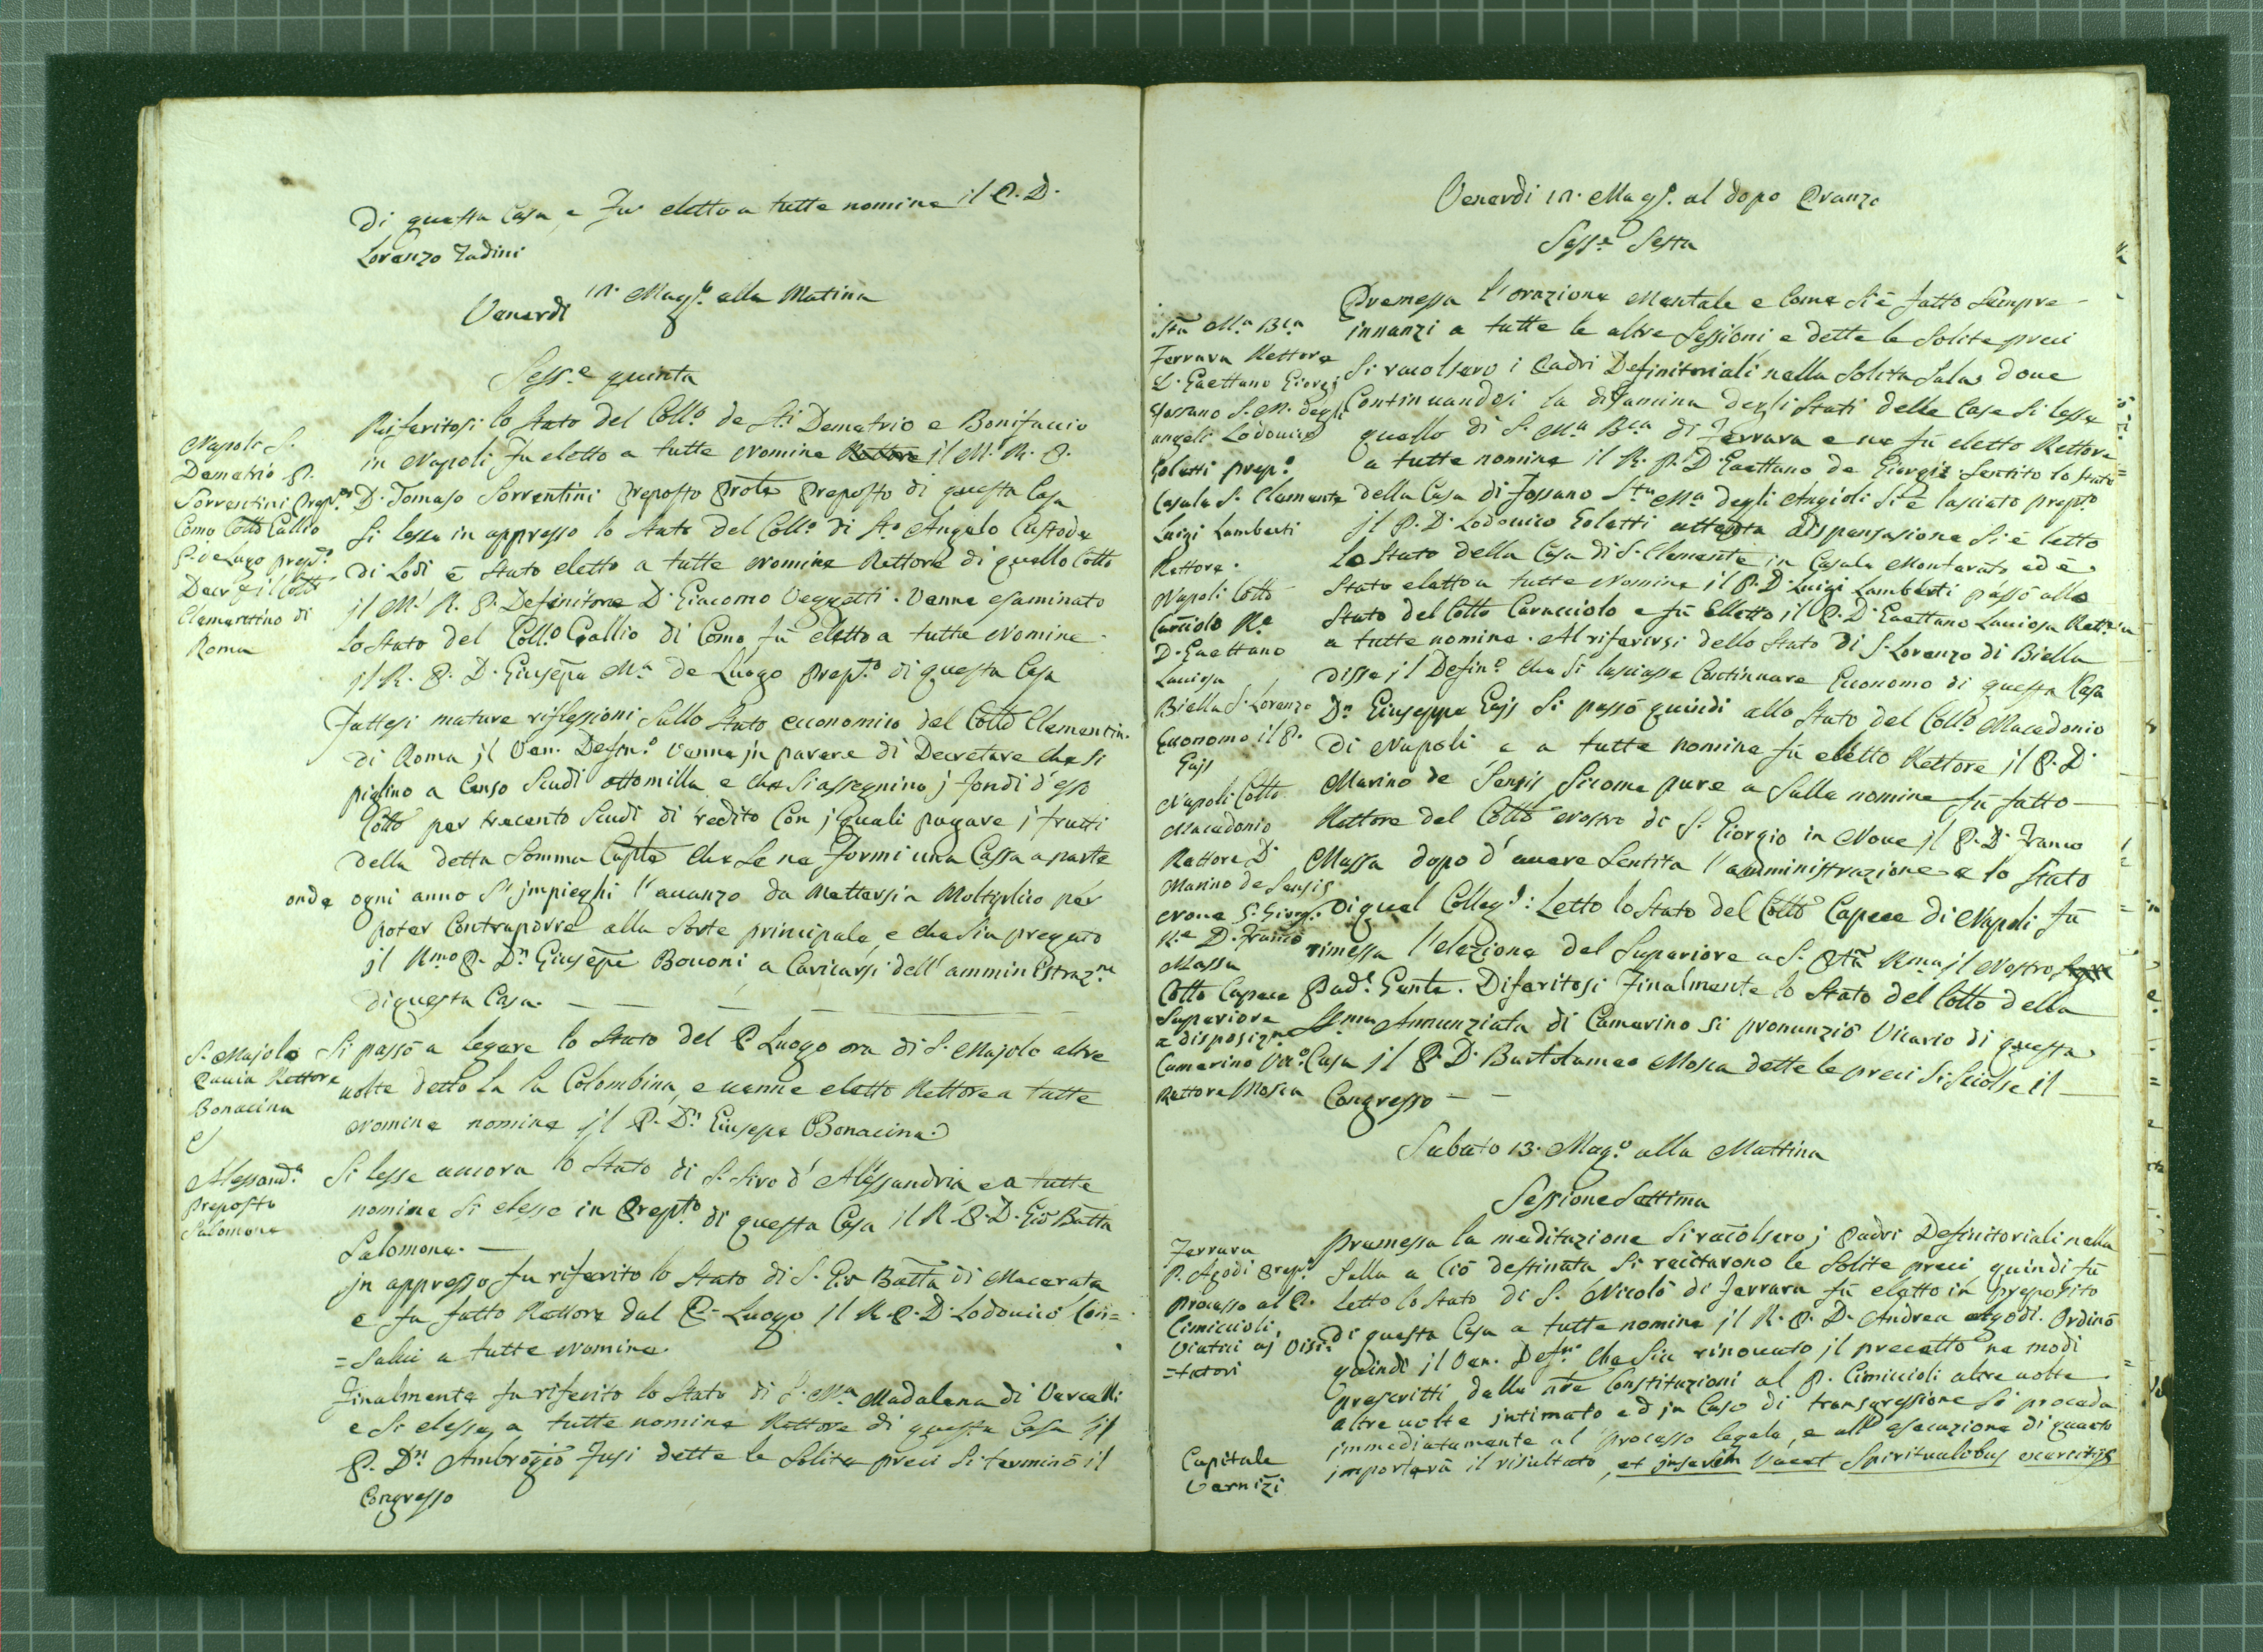 di questa Casa, e Fu eletto a tutte nomine il P. D.
Lorenzo Tadini
Venerdi 12. Magg.o alla Matina
Sess.e quinta
Napoli S.
Demetrio P.
Sorrentini Prep.to
Como Collo Gallio
P. de Lugo prep.to
Decr. p il Collo
Clementino di
Roma
Riferitosi lo Stato del Coll.o de Sti Demetrio e Bonifaccio
in Napoli fu eletto a tutte Nomine Rettore il M. R. P.
D. Tomaso Sorrentini preposto Preposto di questa Casa
Si lesse in appresso lo Stato del Coll.o di Sto Angelo Custode
di Lodi è Stato eletto a tutte Nomine Rettore di quello Collo
il M. R. P. Definitore D. Giacomo Vegnetti. Venne esaminato
lo Stato del Coll.o Gallio di Como fù eletto a tutte Nomine
il R. P. D. Giusepe Ma de Luogo Prep.to di questa Casa
Fattesi mature riflessioni Sullo Stato economico del Collo Clementin.
di Roma il Ven. Defin.o venne in parere di Decretare che si
piglino a Censo Scudi ottomilla e che si assegnino i fondi d'esso
Collo per trecento Scudi di reddito Con i quali pagare i frutti
della detta Somma che Se ne Formi una Cassa a parte
onde ogni anno S' impieghi l' avanzo da Mettersi a Moltiplico per
poter Contraporre alla Sorte principale, e che Sia pregato
il Rmo P. Dn Giusepe Bovoni a Caricarsi dell' amministraz.ne
di questa Casa.
S. Majolo
Pavia Rettore
Bonacina
Si passò a legere lo Stato del P. Luogo ora di S. Majolo altre
volte detto la la Colombina, e venne eletto Rettore a tutte
Nomine nomine il P. Dn Giusepe Bonacina.
Alessand.a
Preposto
Salomone
Si lesse ancora lo Stato di S. Siro d' Alessandria, e a tutte
nomine si elesse in Prep.to di questa Casa il R. P. D. Gio Batta
Salomone.
in appresso fu riferito lo Stato di S. Gio Batta di Macerata
e fu fatto Rettore dal P. Luogo il R. P. D. Lodovico Con=
=salvi a tutte Nomine.
Finalmente fu riferito lo Stato di S. Ma Madalena di Vercelli
e Si elesse a tutte nomine Rettore di questa Casa il
P. Dn Ambrogio Fusi dette le Solite preci Si terminò il
Congresso
Venerdi 12. Magg.o al dopo Pranzo
Sess.e Sesta
Sta Ma Bca
Ferrara Rettore
D. Gaettano Giorgi
Fossano S. M. degli
angeli Lodovico
Coletti prep.o
Casale S. Clemente
Luigi Lamberti
Rettore.
Napoli Collo
Carciolo Re
D. Gaettano
Laviosa
Biella S. Lorenzo
Economo il P.
Gajs
Napoli Collo
Macedonio
Rettore D.
Marino de Sensis
Nove S. Giorg.
R.e D. Franco
Massa
Collo Capece
Superiore
a disposiz.ne
Camerino Vic.o
Rettore Mosca
Premessa l' orazione Mentale e Come Si è fatto Sempre
innanzi a tutte le altre Sessioni e dette le Solite preci
Si racolsero i Padri Definitoriali nella Solita Sala dove
Continuandosi la disamina degli Stati delle Case Si lesse
quello di S. Ma Bca di Ferrara e ne fù eletto Rettore
a tutte nomine il R. P. D. Gaettano de Giorgis Sentito lo Stato
della Casa di Fossano Sta Ma degli Angioli Si è lasciato prep.to
il P. D. Lodovico Coletti attenta dispensasione Si è letto
lo Stato della Casa di S. Clemente in Casale Monferato ed è
Stato eletto a tutte Nomine il P. D. Luigi Lamberti passò allo
Stato del Collo Caracciolo e fù Elletto il P. D. Gaettano Laviosa Rett.e
a tutte nomine. Al riferirsi dello Stato di S. Lorenzo di Biella
disse il Defin.o che Si lasciasse Continuare Economo di questa Casa
Dn Giuseppe Gajs Si passò quindi allo Stato del Coll.o Macedonio
di Napoli e a tutte nomine fù eletto Rettore il P. D.
Marino de Sensis Sicome pure a Sulle nomine fù fatto
Rettore del Collo Nostro di S. Giorgio in Nove il P. D. Franco
Massa dopo d' avere Sentita l' amministrazione e lo Stato
di quel Colleg.o: Letto lo Stato del Collo Capece di Napoli fù
rimessa l' elezione del Superiore a S. Pta Rma il Nostro
Pad.e Gente. Diferitosi Finalmente lo Stato del Collo della
SSma Annunziata di Camerino si pronunziò Vicario di questa
Casa il P. D. Bartolameo Mosca dette le preci Si Sciolse il
Congresso
Sabato 13. Mag.o alla Mattina
Sessione Settima
Ferrara
P. Agodi Prep.o
Processo al P.
Cimiccioli
Viatici ai Visi=
=tatori
Capitale
Vernizi
premessa la meditazione Si racolsero i Padri Definitoriali nella
Salla a Ciò destinata Si recittarono le Solite preci quindi fù
letto lo Stato di S. Nicolò di Ferrara fù eletto in preposito
di questa Casa a tutte nomine il R. P. D. Andrea Agodi. Ordinò
quindi il Ven. Def.rio che Sia rinovato il precetto ne modi
prescritti dalle nre Constituzioni al P. Cimiccioli altre volte
altre volte intimato ed in Caso di transgressione Si proceda
immediatamente al processo legale, e all' esecuzione di quanto
importerà il risultato, et interim vacet Spiritualibus exercitijs